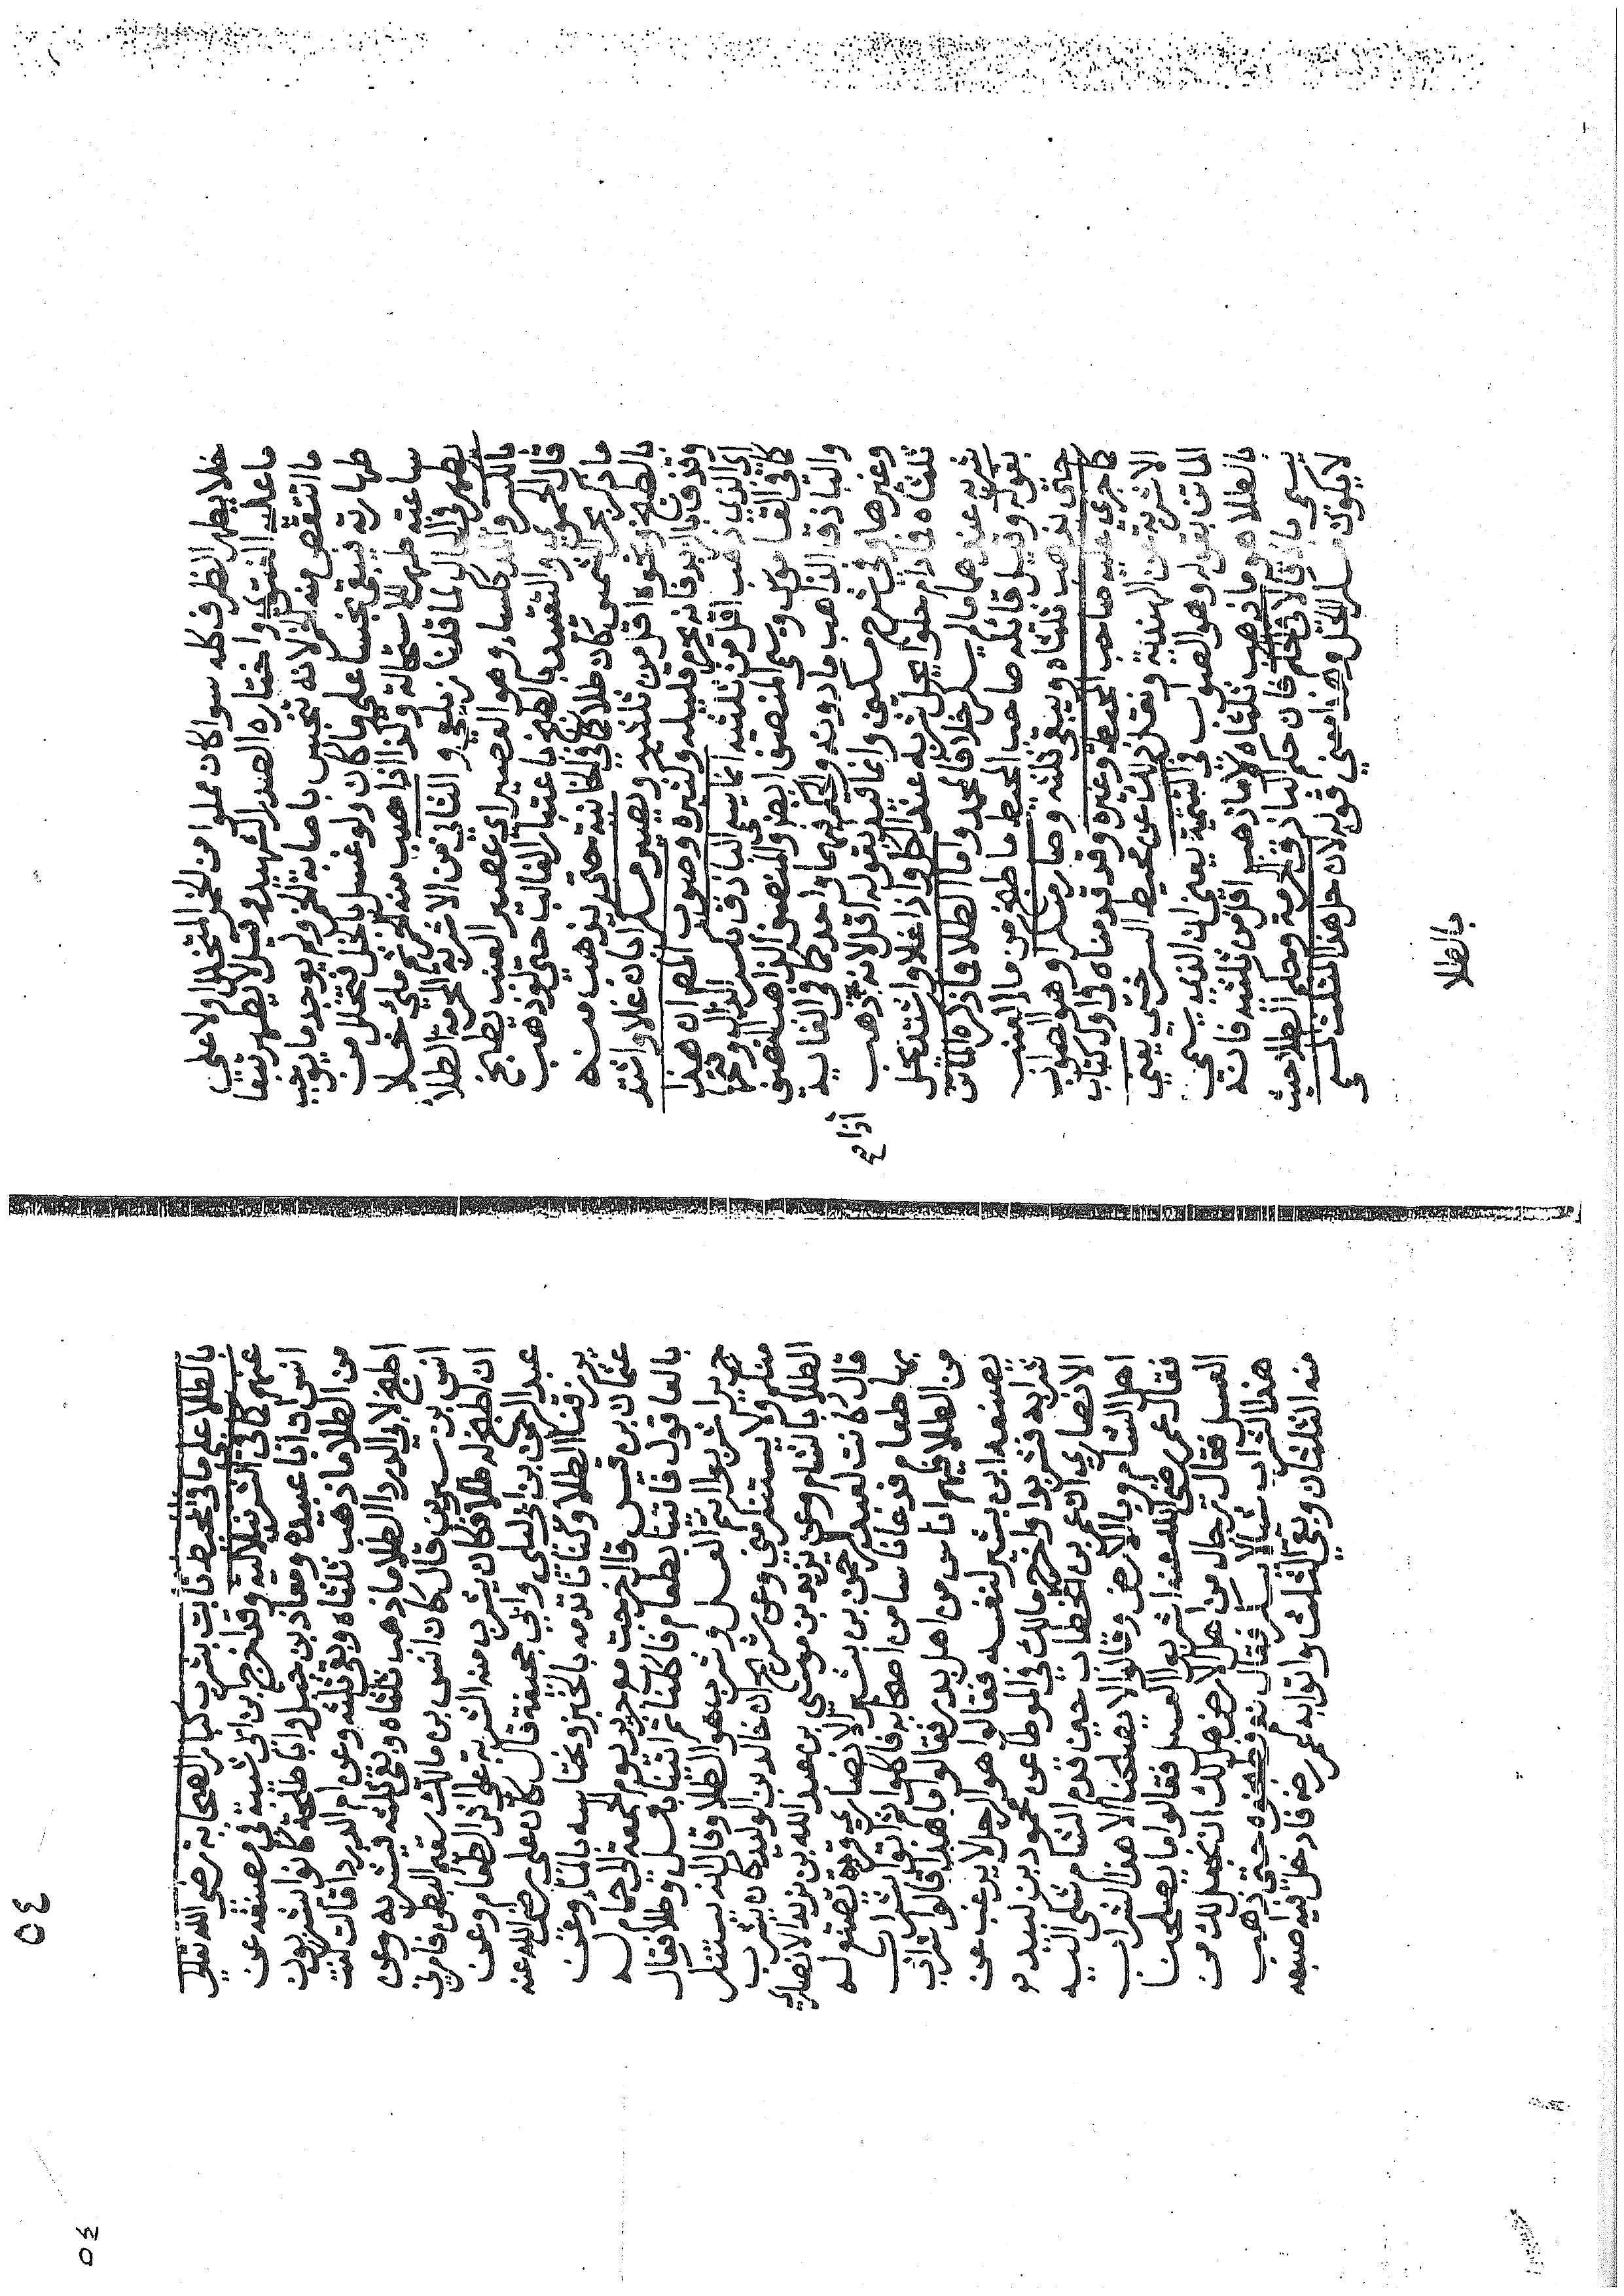 خلا يطهر الظرف كله سوا كان مملوا من الخمر المتخلل اولا على
ما عليه الفتوى واختاره الصدر الشهيد وقيل لا يطهر تبعا
ما انتقص منه الخمر لانه تنجس باصابة الخمر ولم يوجد ما يوجب
طهارته فيبقى نجسا على ما كان ولو غسل بالخل فتخلل من
ساعته طهر للاستحالة وكذا اذا صب منه الخمر ثم ملئ خلا
يطهر في الحال لما قلنا زيلعي و الثاني من الاشربة المحرمة الطلا
بالكسر والمد ككساء وهو العصير اي عصير العنب يطبخ
قال الحموي والتقييد بالطبخ باعتبار الغالب حتى لو ذهب
ما ذكر بحر الشمس كان طلا كما في الخانية حتى يذهب منه
بالطبخ ونحوه اقل من ثلثيه ويصير مسكرا بان غلا واشتد
وقذف بالزبد فانه يحرم قليله وكثيره وصوب المص ان هذا
اي الذي ذهب اقل من ثلثيه انما يسمى الباذق بكسر الذال وفتحها
كما في القاموس ويسمى المنصف ايض والمنصف الذاهب النصف
والباذق الذاهب ما دونه والحكم فيهما واحد كما في الغاية
وغيرها وفي شرح مسكين وانما قيد بقوله اقل لانه اذا ذهب
ثلثاه فما دام حلوا يحل شربه عند الكل واذا غلا واشتد يحل
شربه عندهما ما لم يسكر خلافا لمحمد واما الطلا فما ذكره الماتن
بقوله وقيل قائله صاحب المحيط ما طبخ من ماء العنب
حتى يذهب ثلثاه ويبقى ثلثه وصار مسكرا وهو الصواب
كما جرى عليه صاحب المحيط وغيره وقد قدمناه في اول كتاب
الاشربة عن الهندية ونقل ذلك عن محيط السرخسي يعني
الماتن بقوله وهو الصواب في التسمية يعني ان الذي يسمى
بالطلاء هو ما ذهب ثلثاه لا ما ذهب اقل من ثلثيه فانه
يسمى باذقا لا في الحكم فان حكم الباذق الحرمة وحكم الطلا حيث
لا يكون مسكرا الحل وهذا معنى قوله لان حل هذا المثلث المسمى
اذا صح
بالطلا
٥٤
بالطلا على ما في المحيط ثابت بشرب كبار الصحابة رضي الله تعالى
عنهم كما في الشرنبلالية وقد اخرج ابن ابي شيبة في مصنفه عن
انس ان ابا عبيدة ومعاذ بن جبل وابا طلحة كانوا يشربون
من الطلا ما ذهب ثلثاه وبقي ثلثه وعن ام الدرداء قالت كنت
اطبخ لابي الدرداء الطلا ما ذهب ثلثاه وبقي ثلثه فيشربه وعن
انس بن سيرين قال كان انس بن مالك سقيم البطن فامرني
ان اطبخ له طلا فكان يشرب منه الشربة على اثر الطعام وعن
عبد الرحمن بن ابي ليلى وابي جحيفة قال كان علي رضي الله عنه
يرزقنا الطلا وكنا ناتدمه بالخبز ونختاسه بالماء وعن
عثمان بن قيس قال خرجت مع جرير يوم الجمعة الى حمام له
بالعاقول فاتينا بطعام فاكلنا ثم اتينا بعسل وطلا فقال
جرير اشربوا انتم العسل وشرب هو الطلا وقال انه يستنكر
منكم ولا يستنكر مني وعن شريح ان خالد بن الوليد كان يشرب
الطلا بالشام وعن يزيد بن موسى بن عبد الله بن يزيد الانصاري
قال كانت لعبد الرحمن بن بشير الانصاري قرية تصنع له
بها طعام فدعا ناسا من اصحابه فاكلوا ثم اتوا بشراب
من الطلا فيهم اناس من اهل بدر فقالوا ما هذا قالوا شراب
يصنعه ابن بشير لنفسه فقالوا هو الرجل لا يرغب عن
شرابه فشربوا واخرج مالك في الموطا عن محمود بن لبيد
الانصاري ان عمر بن الخطاب حين قدم الشام شكى اليه
اهل الشام وباء الارض وقالوا لا يصلحنا الا هذا الشراب
فقال عمر رضي الله عنه اشربوا العسل فقالوا ما يصلحنا
العسل فقال رجال من اهل الارض هل لك ان نجعل لك من
هذا الشراب شيا لا يسكر فقال نعم فطبخوه حتى ذهب
منه الثلثان وبقي الثلث واتوا به عمر رضه فادخل فيه اصبعه
٥٤